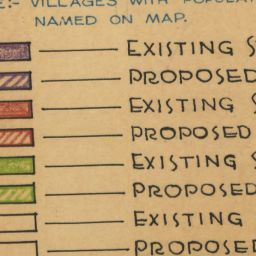 E:- VILLAGES WITH
NAMED ON MAP.
EXISTING
PROPOSED
EXISTING
PROPOSED
EXISTING
PROPOSED
EXISTING
PROPOSED